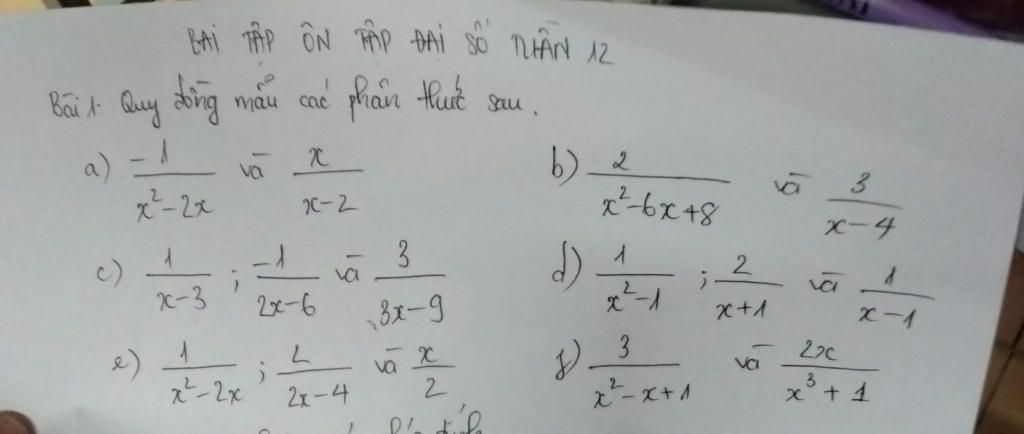 BÀI TẬP ÔN TẬP ĐẠI SỐ TUẦN 12
Bài 1: Quy đồng mẫu các phân thức sau.
a) -1/(x²-2x) và x/(x-2) b) 2/(x²-6x+8) và 3/(x-4)
c) 1/(x-3) ; -1/(2x-6) và 3/(3x-9) d) 1/(x²-1) ; 2/(x+1) và 1/(x-1)
e) 1/(x²-2x) ; 2/(2x-4) và x/2 f) 3/(x²-x+1) và 2x/(x³+1)